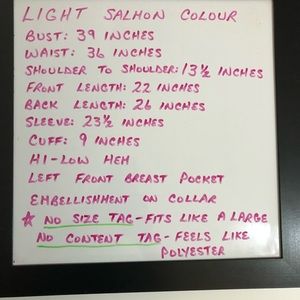 LIGHT SALMON COLOUR
BUST: 39 INCHES
WAIST: 36 INCHES
SHOULDER TO SHOULDER: 13 1/2 INCHES
FRONT LENGTH: 22 INCHES
BACK LENGTH: 26 INCHES
SLEEVE: 23 1/2 INCHES
CUFF: 9 INCHES
HI-LOW HEM
LEFT FRONT BREAST POCKET
EMBELLISHMENT ON COLLAR
☆ NO SIZE TAG - FITS LIKE A LARGE
NO CONTENT TAG - FEELS LIKE
POLYESTER